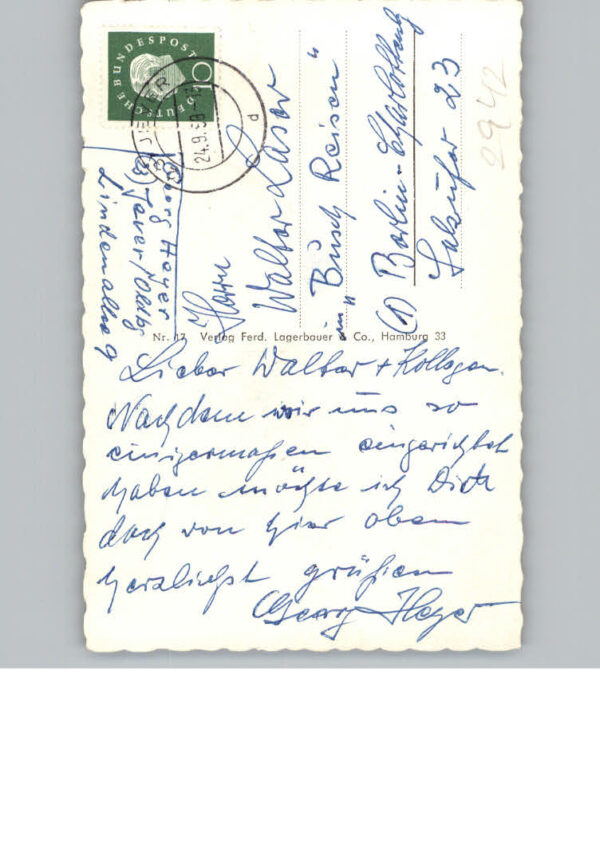 DEUTSCHE BUNDESPOST
JEVER
24.9.59
d
Georg Heyer
(23) Jever/Oldbg
Lindenallee 9
Herrn
Walter Laser
in „Busch Reisen“
(1) Berlin-Charlottenburg
Salzufer 23
2942
Nr. 17 Verlag Ferd. Lagerbauer & Co., Hamburg 33
Lieber Walter + Kollegen.
Nachdem wir uns so
einigermaßen eingerichtet
haben möchte ich Dich
doch von hier oben
herzlichst grüßen
Georg Heyer